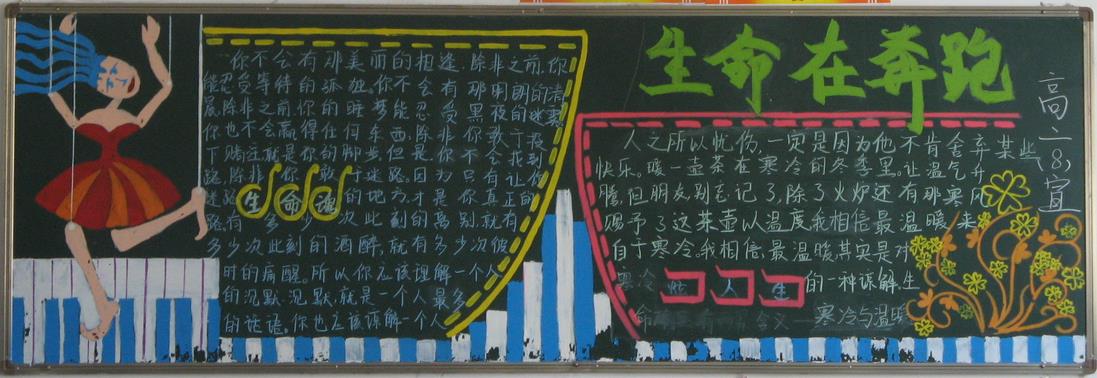 生命在奔跑
高二(8)宣
你不会有那美丽的相逢,除非之前,你
能忍受等待的孤独。你不会有那明朗的清
晨,除非之前你的睡梦能忍受黑夜的迷
你也不会赢得任何东西,除非你敢于投
下赌注就是你的脚步,但是,你不会找到
路,除非你敢于迷路。因为只有让你
迷路的地方,才是你真正的
路。有多次此刻的离别,就有
多少次此刻的酒醉,就有多少次彼
时的病醒。所以你应该理解一个人
的沉默。沉默,就是一个人最多
的话语。你也应该谅解一个人
生命
人之所以忧伤,一定是因为他不肯舍弃某些
快乐。暖一壶茶在寒冷的冬季里。让温气升
腾,但朋友别忘记了,除了火炉还有那寒风
赐予了这茶壶以温度,我相信最温暖来
自于寒冷。我相信,最温暖其实是对
寒冷的一种谅解,生
人生
命含义
寒冷与温暖